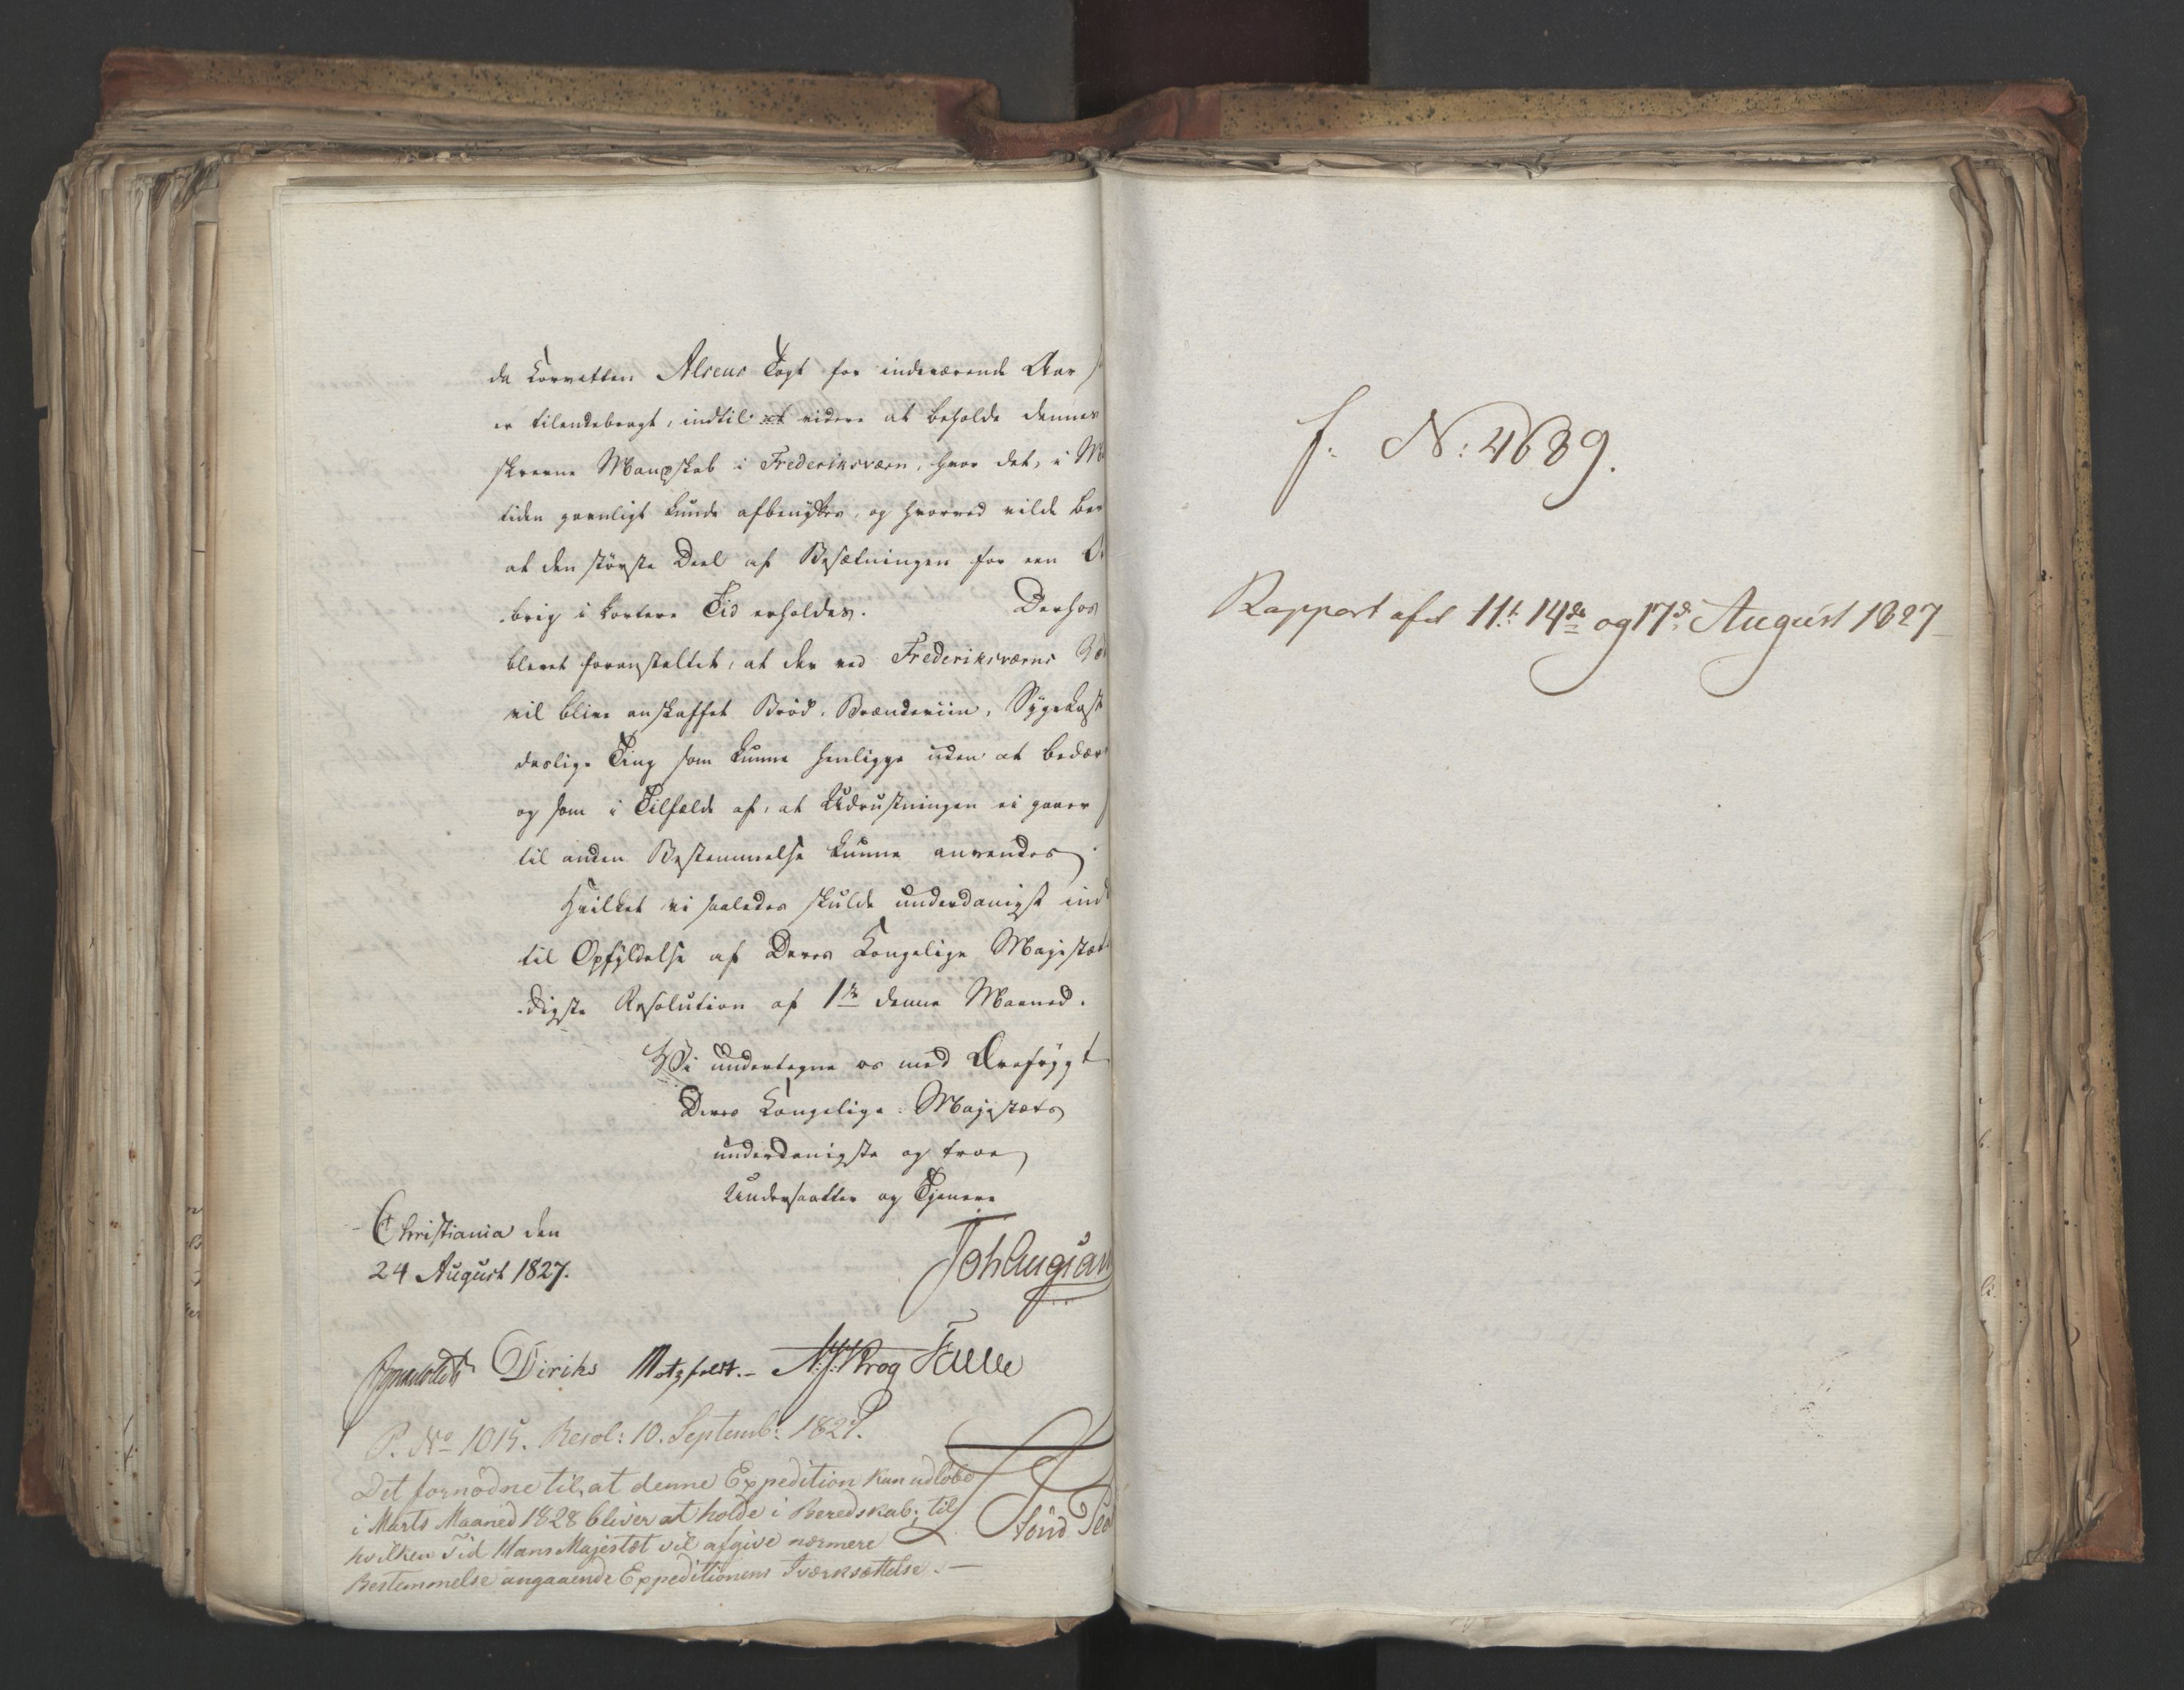 da Korvetten Alseus Togt for indeværende Aar
er tilendebragt, indtil videre at beholde dennes
skrevne Mandskab i Frederiksværn, hvor det, i
tiden gavnligt kunde afbenyttes, og hvorved vilde
at den største Deel af Besætningen for een
brig i kortere Tid erholdes. Derhos
blevet foranstaltet, at der ved Frederiksværns
vil blive anskaffet Brød, Brændeviin,
deslige Ting som kunne henligge uden at
og som i Tilfælde af, at Udrustningen ei gaaer
til anden Bestemmelse kunne anvendes.
Hvilket vi saaledes skulde underdanigst
til Opfyldelse af Deres Kongelige
digste Resolution af 1ste denne Maaned.
Vi undertegne os med Ærefrygt
Deres Kongelige Majestæts
underdanigste og troe
Undersaatter og Tjenere
Christiania den
24 August 1827.
Diriks Motzfeldt. N: J: Krog
P. No 1015. Resol: 10. Septemb: 1827.
Det fornødne til, at denne Expedition kan udløbe
i Marts Maaned 1828 bliver at holde i Beredskab; til
hvilken Tid Hans Majestæt vil afgive nærmere
Bestemmelse angaaende Expeditionens Iværksættelse. —
f. N: 4689.
Rapport af 11t 14de og 17d: August 1827